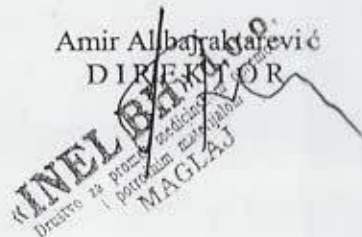 Amir Alibajraktarević
DIREKTOR
«INEL BH» d.o.o.
Društvo za promet medicinskom opremom
i potrošnim materijalom
MAGLAJ